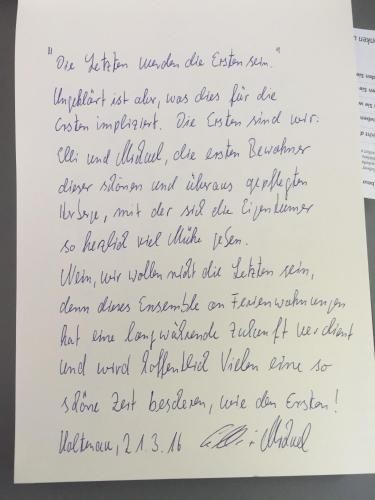 "Die Letzten werden die Ersten sein."
Ungeklärt ist aber, was dies für die
Ersten impliziert. Die Ersten sind wir:
Elli und Michael, die ersten Bewohner
dieser schönen und überaus gepflegten
Herberge, mit der sich die Eigentümer
so herzlich viel Mühe geben.
Nein, wir wollen nicht die Letzten sein,
denn dieses Ensemble an Ferienwohnungen
hat eine langwährende Zukunft verdient
und wird hoffentlich Vielen eine so
schöne Zeit bescheren, wie den Ersten!
21.3.16 Elli & Michael